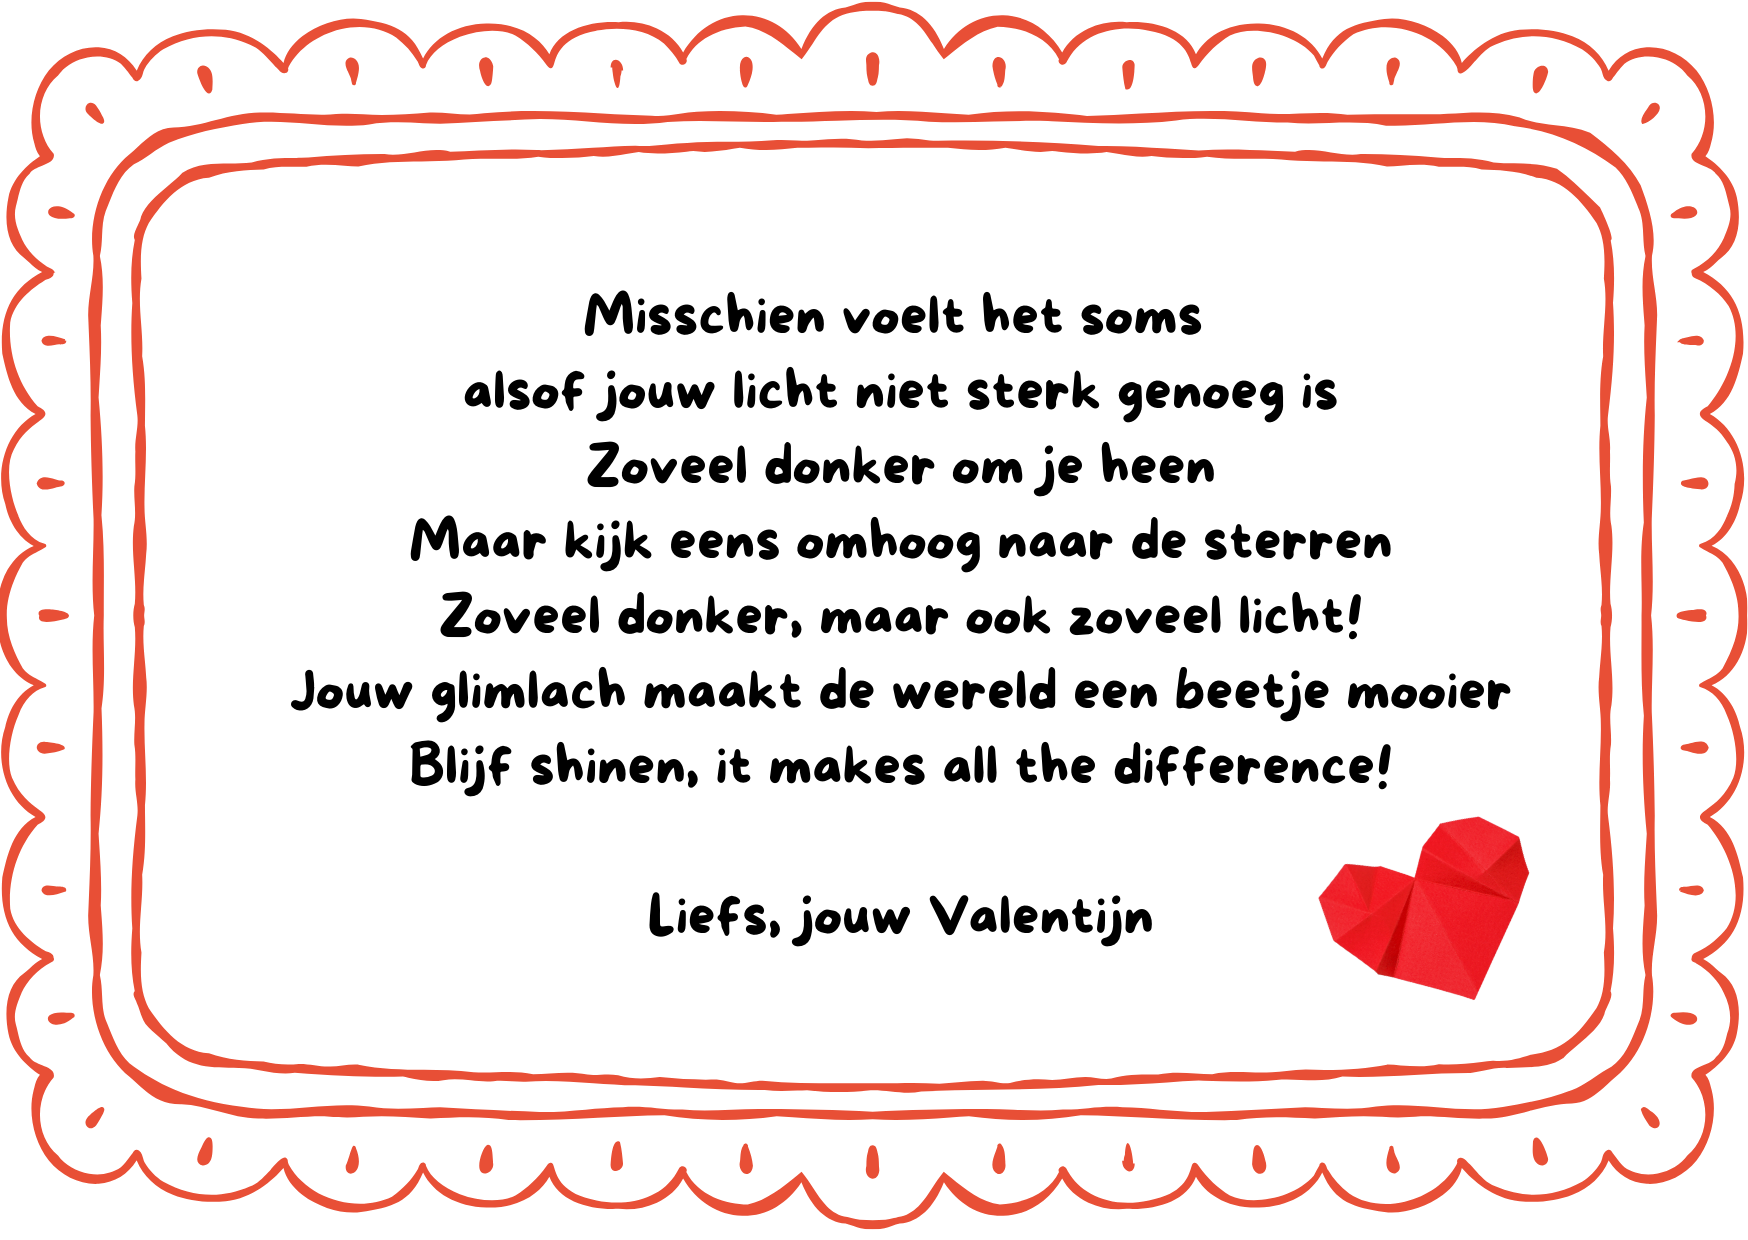 Misschien voelt het soms
alsof jouw licht niet sterk genoeg is
Zoveel donker om je heen
Maar kijk eens omhoog naar de sterren
Zoveel donker, maar ook zoveel licht!
Jouw glimlach maakt de wereld een beetje mooier
Blijf shinen, it makes all the difference!
Liefs, jouw Valentijn